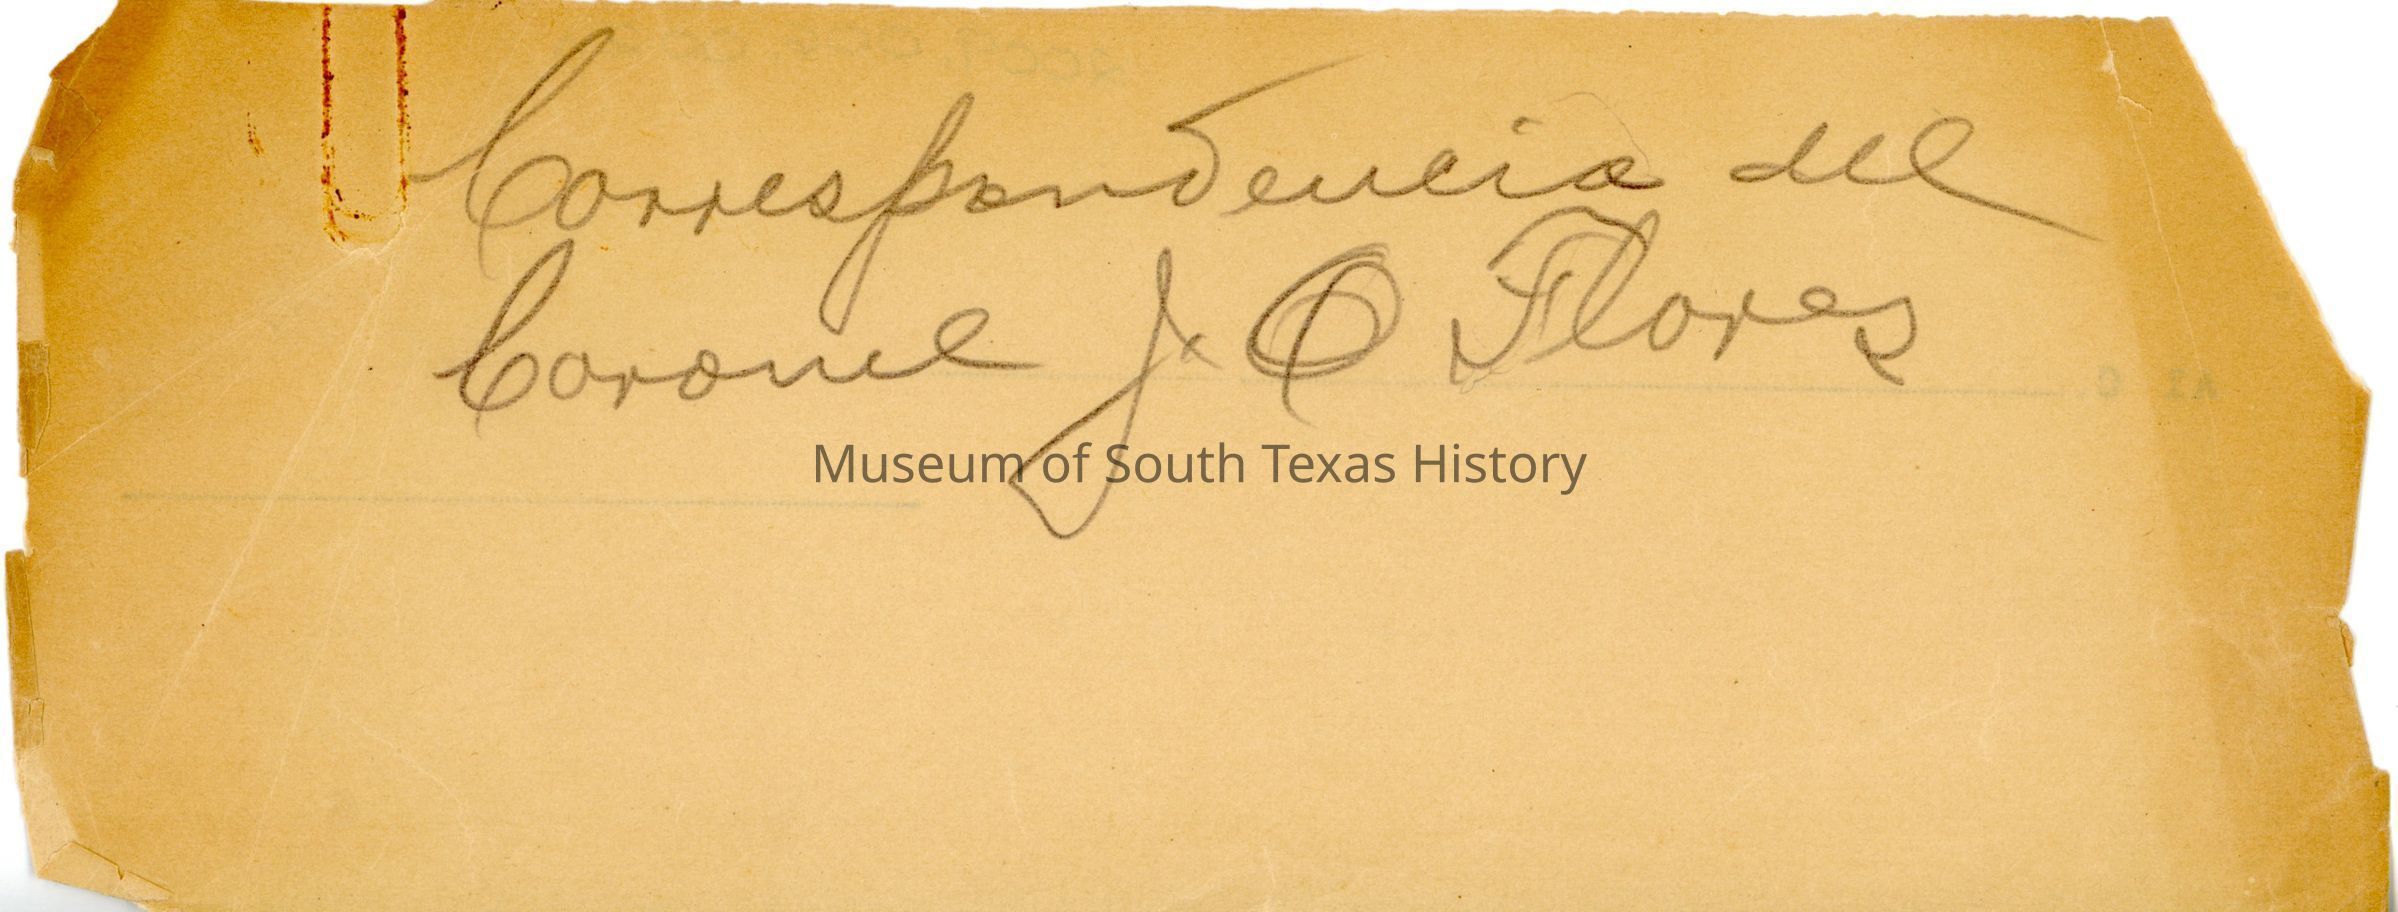 Correspondencia del
Coronel J. O Flores
Museum of South Texas History